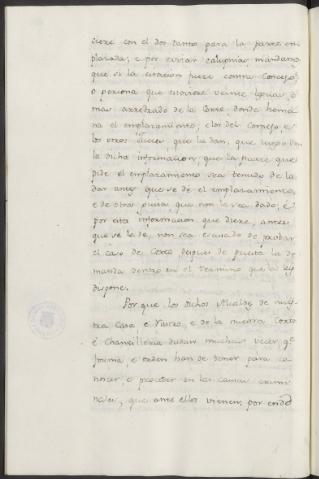 diere con el dos tanto para la parte em-
plazada; e por evitar calupnias, mandamos
que si la citacion fuere contra Concejo,
o persona que estoviere veinte leguas, o
mas arredrado de la Corte, donde fuera
el emplazamiento; e los del Consejo, e
los otros Jueces que la dan, que luego dan
la dicha informacion, que la parte que
pide el emplazamiento sea tenudo de la
dar antes que se dé el emplazamiento,
e de otra guisa que non le sea dado; é
por esta informacion que diere, antes
que se le dé, non sea escusado de probar
el caso de Corte, despues de puesta la de-
manda dentro en el termino que la ley
dispone.
Porque los dichos Alcaldes de nues-
tra Casa, e Rastro, e de la nuestra Corte
é Chancilleria dudan muchas veces, qe
forma, e orden han de tener para co-
nocer, e proceder en las causas crimi-
nales, que ante ellos vienen; por ende